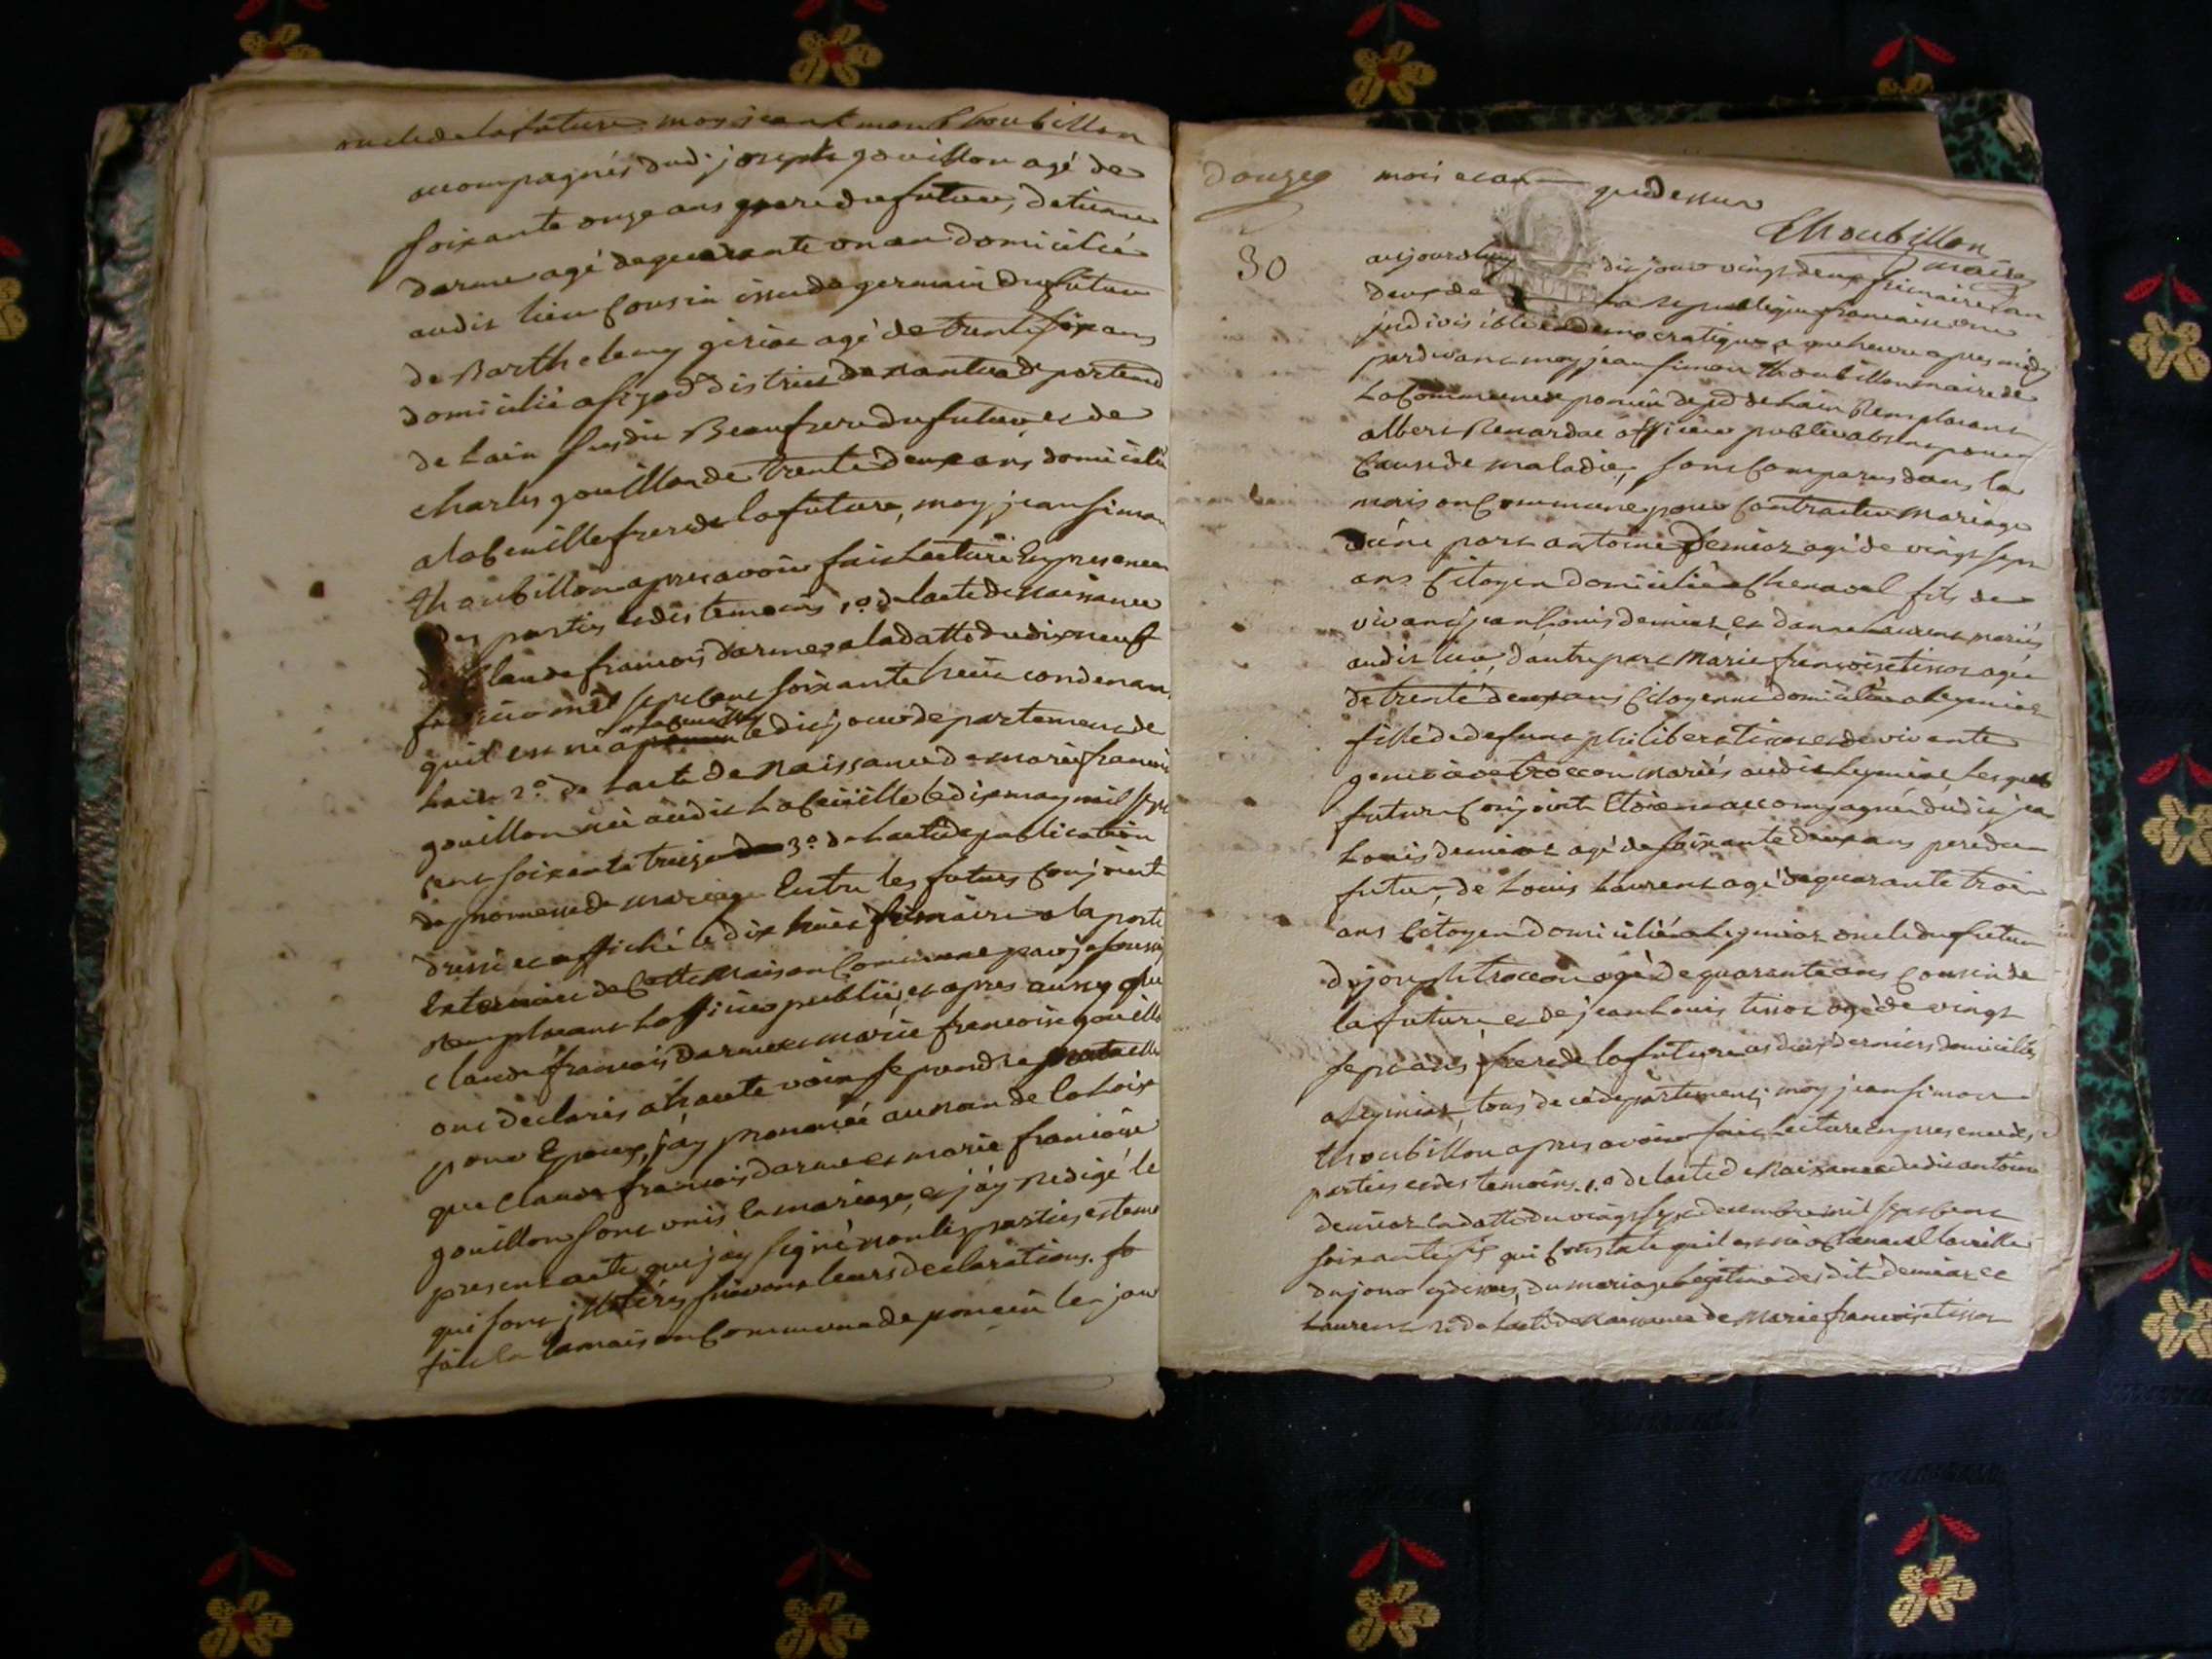 oncle de la future. moy jean
accompagnés dud. joseph gouillon agé de
soixante onze ans pere du futur, detienne
darme agé de quarante un an domicilié
audit lieu cousin issu de germain du futur
de Barthelemy girior agé de trente six ans
domicilié district de nantua departemt
de Lain susdit Beaufrere du futur et de
charles gouillon de trente deux ans domicilié
a frere de la future, moy jean simon
thoubillon apres avoir fait lecture En presence
des parties et des temoins 1.º de lacte de naissance
de Claude francois darme a la datte du dix neuf
mil sept cent soixante huit
quil est né a le dit jour departement de
Lain 2.º de Lacte de Naissance de marie francoise
gouillon née audit le dix may mil sept
cent soixante treize 3.º de Lacte de publication
de promesse de mariage Entre les futurs Conjoints
dressé et affiché le dix huit frimaire a la porte
Exterieure de Cette Maison Commune par je soussigné
Remplacant Lofficier public, et apres aussy que
claude francois darme et marie francoise gouillon
ont declarés a haute voix se prendre mutuelle
pour Epoux, jay prononcé au nom de la Loix
que claude francois darme et marie francoise
gouillon sont unis en mariage, et jay redigé le
present acte que jay signé non les parties et temo
qui sont illiterés suivant leurs declarations.
fait En la maison Commune de poncin les jour
douze mois et an que dessus
Thoubillon
maire
30
aujourdhuy dix jour vingt deux frimaire an
deux de La republique francaise une
indivisible et democratique a une heure apres midy
pardevant moy jean simon thoubillon maire de
La Commune de poncin de Lain Remplacant
albert Renardat officier public absent pour
Cause de maladie, sont Comparus dans la
maison Commune pour Contracter mariage
d'une part antoine demiaz agé de vingt sept
ans Citoyen domicilié a Chenavel fils de
vivant jean Louis demiaz et danne Laurent mariés
audit lieu, d'autre part Marie francoise tissot agée
de trente deux ans Citoyenne domiciliée a
fille de defunt philibert tissot et de vivante
genevieve trocon mariés audit Lesquels
futurs Conjoints Etoient accompagnés dudit jean
Louis demiaz agé de soixante deux ans pere du
futur, de Louis Laurent agé de quarante trois
ans Citoyen domicilié a oncle du futur
de joseph trocon agé de quarante ans Cousin de
la future et de jean Louis tissot agé de vingt
sept ans frere de la future derniers domiciliés
a tous de ce departement, moy jean simon
thoubillon apres avoir fait Lecture en presence des
parties et des temoins 1.º de lacte de Naissance dudit antoine
demiaz la datte du vingt sept decembre mil sept cent
soixante six qui Constate quil est né a Chenavel
du jour du mariage Legitime desdits demiaz et
Laurent 2.º de Lacte de Naissance de Marie francoise tissot